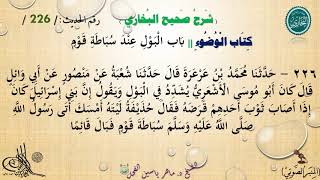 شرح صحيح البخاري
رقم الحديث: / 226 /
كِتَابُ الْوُضُوءِ || بَابُ الْبَوْلِ عِنْدَ سُبَاطَةِ قَوْمٍ
٢٢٦ - حَدَّثَنَا مُحَمَّدُ بْنُ عَرْعَرَةَ قَالَ حَدَّثَنَا شُعْبَةُ عَنْ مَنْصُورٍ عَنْ أَبِي وَائِلٍ
قَالَ كَانَ أَبُو مُوسَى الْأَشْعَرِيُّ يُشَدِّدُ فِي الْبَوْلِ وَيَقُولُ إِنَّ بَنِي إِسْرَائِيلَ كَانَ
إِذَا أَصَابَ ثَوْبَ أَحَدِهِمْ قَرَضَهُ فَقَالَ حُذَيْفَةُ لَيْتَهُ أَمْسَكَ أَتَى رَسُولُ اللَّهِ
صَلَّى اللَّهُ عَلَيْهِ وَسَلَّمَ سُبَاطَةَ قَوْمٍ فَبَالَ قَائِمًا
د. ماهر ياسين الفحل